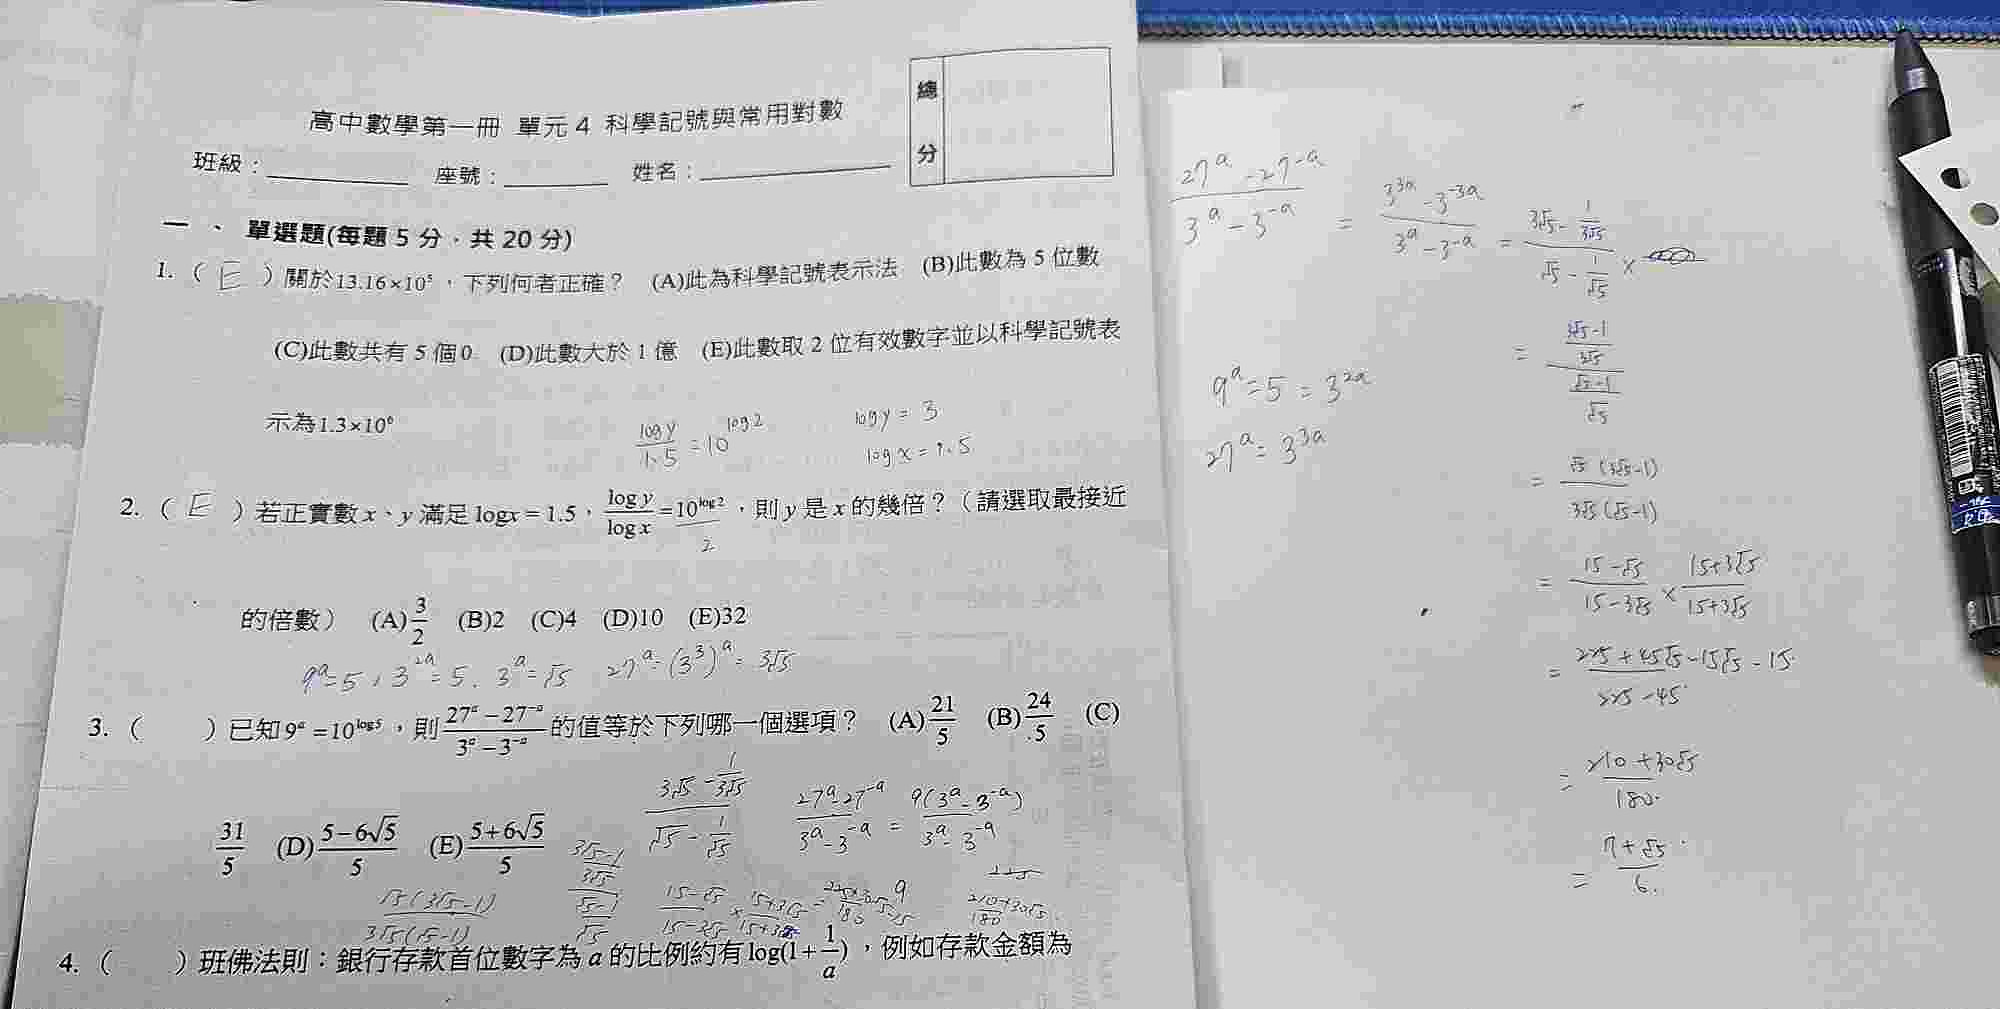 高中數學第一冊 單元 4 科學記號與常用對數
總分
班級：________ 座號：________ 姓名：________
一、單選題(每題 5 分，共 20 分)
1.（ E ）關於13.16×10⁵，下列何者正確？ (A)此為科學記號表示法 (B)此數為 5 位數
(C)此數共有 5 個0 (D)此數大於 1 億 (E)此數取 2 位有效數字並以科學記號表
示為1.3×10⁶
log y / 1.5 = 10^log2
log y = 3
log x = 1.5
2.（ E ）若正實數 x、y 滿足 logx = 1.5，log y / log x = 10^log2，則 y 是 x 的幾倍？（請選取最接近
2
的倍數） (A) 3/2 (B)2 (C)4 (D)10 (E)32
9^a = 5, 3^2a = 5. 3^a = √5 27^a = (3³)^a = 3√5
3.（ ）已知 9^a = 10^log5，則 (27^a − 27^-a)/(3^a − 3^-a) 的值等於下列哪一個選項？ (A) 21/5 (B) 24/5 (C)
31/5 (D) (5−6√5)/5 (E) (5+6√5)/5
(3√5 − 1/3√5)/(√5 − 1/√5)
(27^a - 27^-a)/(3^a - 3^-a) = 9(3^a - 3^-a)/(3^a - 3^-a)
9
((3√5-1)/3√5)/((√5-1)/√5)
√5(3√5-1)/3√5(√5-1)
(15-√5)/(15-3√5) × (15+3√5)/(15+3√5)
(210+30√5)/180
4.（ ）班佛法則：銀行存款首位數字為 a 的比例約有 log(1 + 1/a)，例如存款金額為
(27^a - 27^-a)/(3^a - 3^-a) = (3^3a - 3^-3a)/(3^a - 3^-a) = (3√5 - 1/3√5)/(√5 - 1/√5) ×
= ((3√5-1)/3√5)/((√5-1)/√5)
9^a = 5 = 3^2a
27^a = 3^3a
= √5(3√5-1)/3√5(√5-1)
= (15-√5)/(15-3√5) × (15+3√5)/(15+3√5)
= (225+45√5-15√5-15)/(225-45)
= (210+30√5)/180
= (7+√5)/6